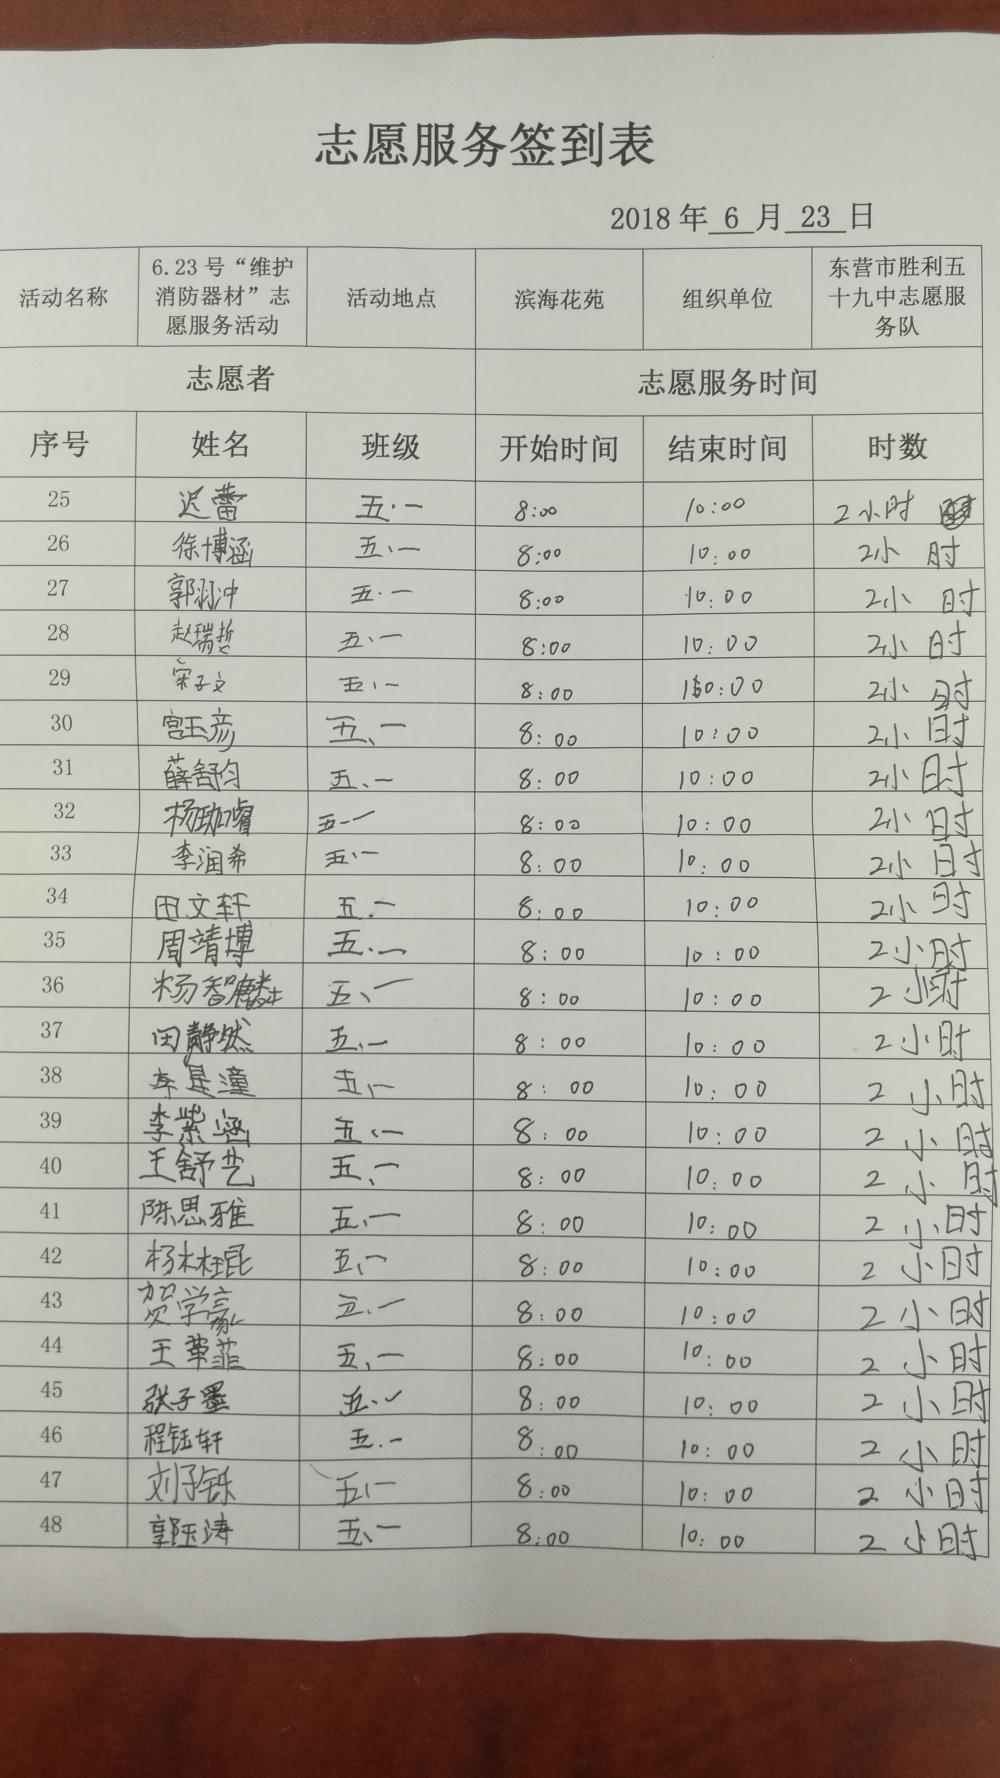 志愿服务签到表
2018 年 6 月 23 日
活动名称 6.23 号“维护消防器材”志愿服务活动 活动地点 滨海花苑 组织单位 东营市胜利五十九中志愿服务队
志愿者 志愿服务时间
序号 姓名 班级 开始时间 结束时间 时数
25 迟蕾 五.一 8:00 10:00 2小时
26 徐博涵 五.一 8:00 10:00 2小时
27 郭羽冲 五.一 8:00 10:00 2小时
28 赵瑞哲 五.一 8:00 10:00 2小时
29 宋子文 五.一 8:00 10:00 2小时
30 宫玉彦 五、一 8:00 10:00 2小时
31 薛舒匀 五.一 8:00 10:00 2小时
32 杨珈睿 五一 8:00 10:00 2小时
33 李润希 五.一 8:00 10:00 2小时
34 田文轩 五.一 8:00 10:00 2小时
35 周靖博 五.一 8:00 10:00 2小时
36 杨智麟 五、一 8:00 10:00 2小时
37 田静然 五.一 8:00 10:00 2小时
38 李是潼 五.一 8:00 10:00 2小时
39 李紫涵 五.一 8:00 10:00 2小时
40 王舒艺 五、一 8:00 10:00 2小时
41 陈思雅 五.一 8:00 10:00 2小时
42 杨木枉昆 五.一 8:00 10:00 2小时
43 贺学豪 五.一 8:00 10:00 2小时
44 王菲 五.一 8:00 10:00 2小时
45 张子墨 五.一 8:00 10:00 2小时
46 程钰轩 五.一 8:00 10:00 2小时
47 刘子铄 五一 8:00 10:00 2小时
48 郭玉涛 五、一 8:00 10:00 2小时